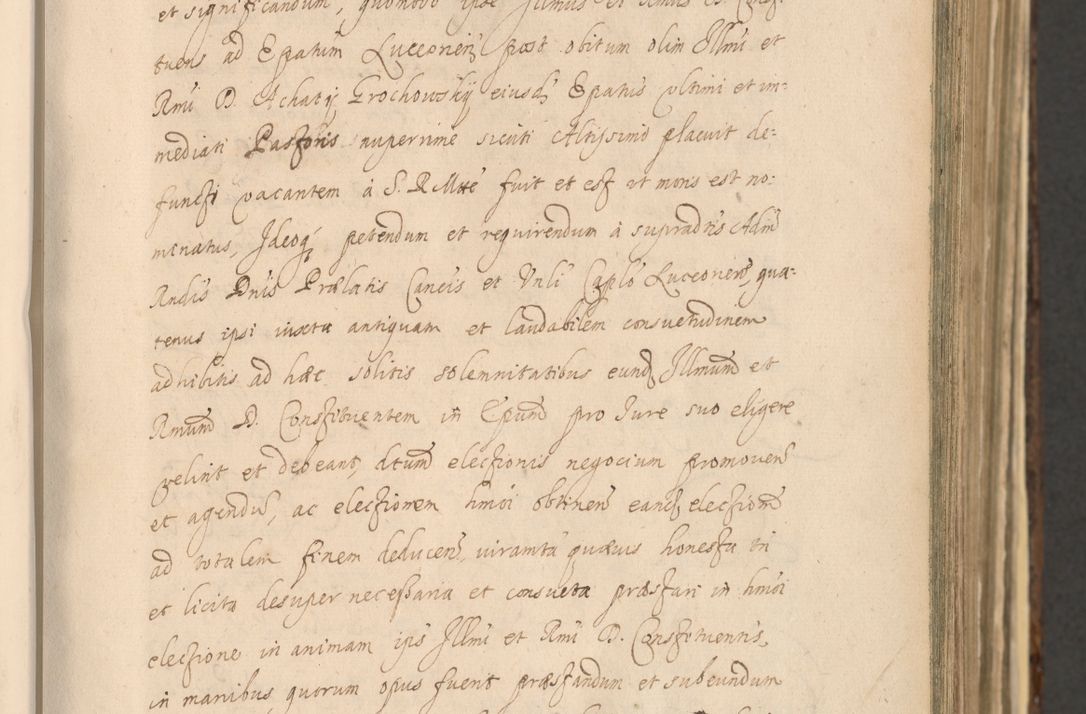 et significandum, quomodo ipse Illmus et Rmus D. Consti-
tuens ad Epatum Luceorien post obitum olim Illmi et
Rmi D. Achatij Grochowskij eiusd Epatus ultimi et im=
mediati Pastoris nuperrime sicuti Altissimo placuit de=
functi vacantem à S. R. Mtte fuit et est ut moris est no=
minatus, Ideoq petendum et requirendum à supradtis Adm
Rndis Dnis Prælatis Cancis et Vnli Caplo Luceorien, qua=
tenus ipsi iuxta antiquam et laudabilem consuetudinem
adhibitis ad hæc solitis solemnitatibus eund Illmum et
Rmum D. Constituentem in Epum pro Iure suo eligere
velint et debeant, dtum electionis negocium promoven
et agendu, ac electionem hmoi obtinen eand electionem
ad totalem finem deducen, iuramta quæcus honesta tn
et licita desuper necessaria et consueta præstari in hmoi
electione in animam ipis Illmi et Rmi D. Constituentis,
in manibus quorum opus fuerit præstandum et subeundum